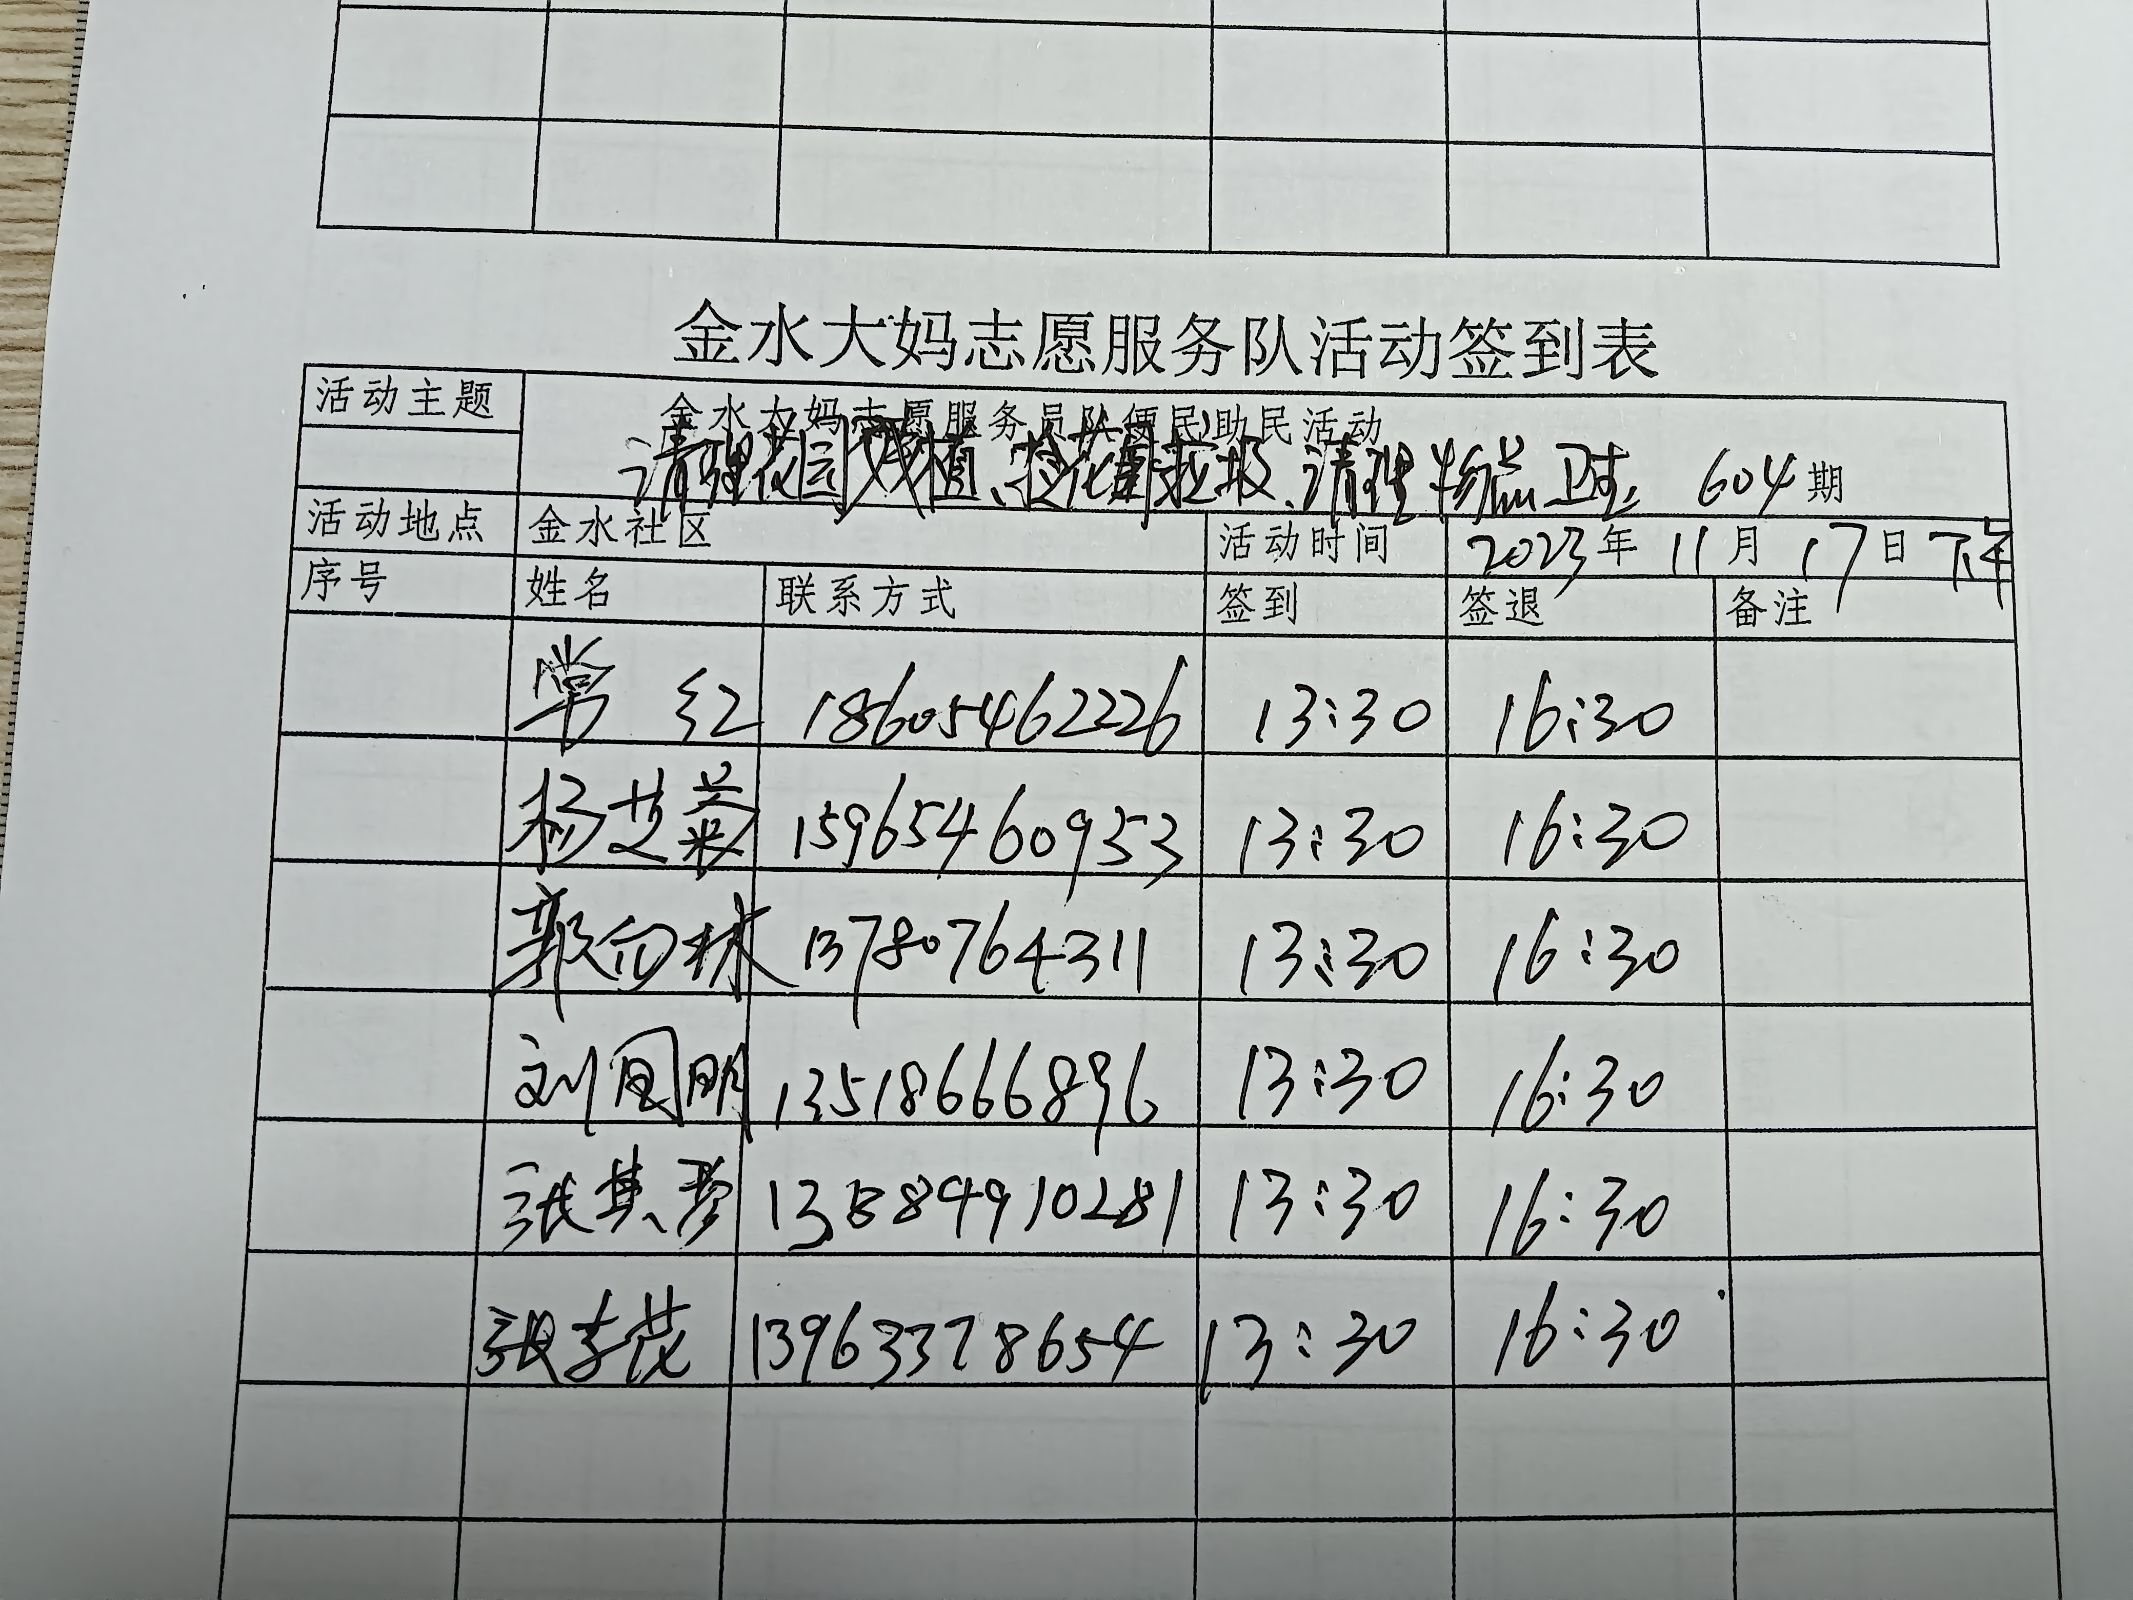 金水大妈志愿服务队活动签到表
活动主题 金水大妈志愿服务员队便民助民活动
请理花园残植、捡花园垃圾、请理物点卫生 604期
活动地点 金水社区 活动时间 2023年11月17日下午
序号 姓名 联系方式 签到 签退 备注
常红 18605462226 13:30 16:30
杨艾蓉 15965460953 13:30 16:30
郭向林 13780764311 13:30 16:30
刘国明 13518666896 13:30 16:30
张其珍 13884910281 13:30 16:30
张孝茂 13963378654 13:30 16:30